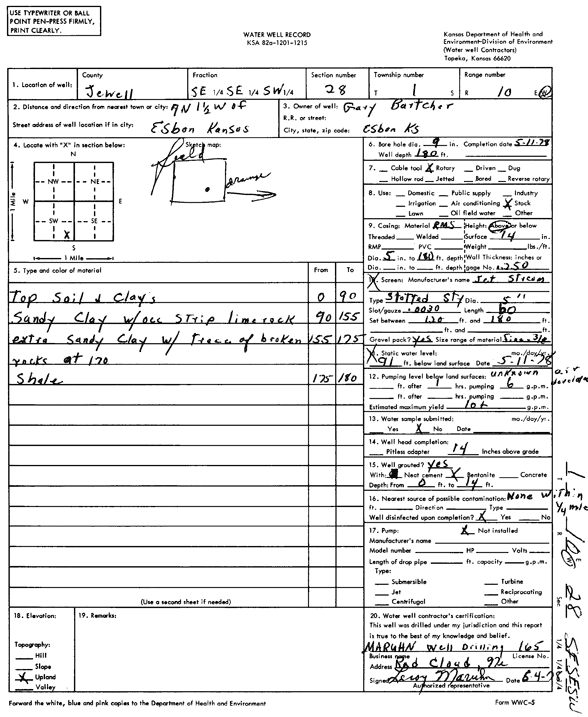 USE TYPEWRITER OR BALL
POINT PEN-PRESS FIRMLY,
PRINT CLEARLY.
WATER WELL RECORD
KSA 82a-1201-1215
Kansas Department of Health and
Environment-Division of Environment
(Water well Contractors)
Topeka, Kansas 66620
1. Location of well:
County
Jewell
Fraction
SE 1/4 SE 1/4 SW 1/4
Section number
28
Township number
T 1 S
Range number
R 10 E/W
2. Distance and direction from nearest town or city: 9N 1½ W of
Street address of well location if in city: Esbon Kansas
3. Owner of well: Gary Bartcher
R.R. or street:
City, state, zip code: Esbon KS
4. Locate with "X" in section below:
Sketch map:
field
N
NW NE
W E
SW SE
X
S
1 Mile
1 Mile
5. Type and color of material From To
Top Soil & Clays 0 90
Sandy Clay w/occ strip limerock 90 155
extra Sandy Clay w/ trace of broken 155 175
rocks at 170
Shale 175 180
(Use a second sheet if needed)
6. Bore hole dia. 9 in. Completion date 5-11-78
Well depth 180 ft.
7. Cable tool X Rotary Driven Dug
Hollow rod Jetted Bored Reverse rotary
8. Use: Domestic Public supply Industry
Irrigation Air conditioning X Stock
Lawn Oil field water Other
9. Casing: Material RMS Height: Above or below
Threaded Welded Surface 14 in.
RMP PVC Weight lbs./ft.
Dia. 5 in. to 180 ft. depth Wall Thickness: inches or
Dia. in. to ft. depth gage No. .250
10. Screen: Manufacturer's name Jet Stream
Type Slotted Sty Dia. 5"
Slot/gauze .0030 Length 60
Set between 120 ft. and 180 ft.
ft. and ft.
Gravel pack? Yes Size range of material
11. Static water level: mo./day/yr.
91 ft. below land surface Date 5-11-78
12. Pumping level below land surfaces: unknown
ft. after 1 hrs. pumping 6 g.p.m.
ft. after hrs. pumping g.p.m.
Estimated maximum yield 10+ g.p.m.
air
13. Water sample submitted: mo./day/yr.
Yes X No Date
14. Well head completion:
Pitless adapter 14 Inches above grade
15. Well grouted? Yes
With: Neat cement X Bentonite Concrete
Depth: From 0 ft. to 14 ft.
16. Nearest source of possible contamination: None within
¼ mile
ft. Direction Type
Well disinfected upon completion? X Yes No
17. Pump: X Not installed
Manufacturer's name
Model number HP Volts
Length of drop pipe ft. capacity g.p.m.
Type:
Submersible Turbine
Jet Reciprocating
Centrifugal Other
18. Elevation:
Topography:
Hill
Slope
X Upland
Valley
19. Remarks:
20. Water well contractor's certification:
This well was drilled under my jurisdiction and this report
is true to the best of my knowledge and belief.
MARUHN Well Drilling 165
Business name License No.
Address Red Cloud, Ne
Signed Leroy Maruhn Date
Authorized representative
T 1
R 10 W
Sec. 28
1/4 1/4 1/4
SE SE SW
Forward the white, blue and pink copies to the Department of Health and Environment
Form WWC-5